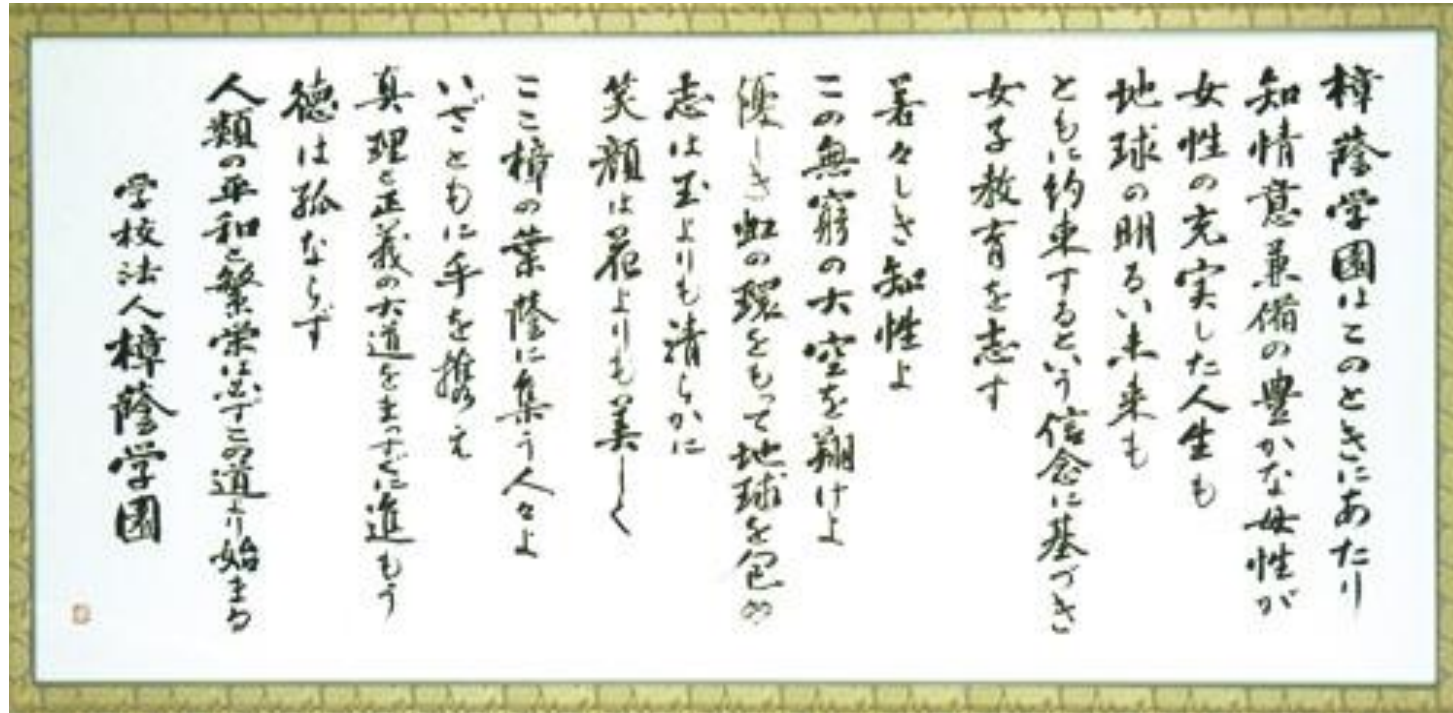 樟蔭学園はこのときにあたり
知情意兼備の豊かな母性が
女性の充実した人生も
地球の明るい未来も
ともに約束するという信念に基づき
女子教育を志す
若々しき知性よ
この無窮の大空を翔けよ
優しき虹の環をもって地球を包め
志は玉よりも清らかに
笑顔は花よりも美しく
ここ樟の葉陰に集う人々よ
いざともに手を携え
真理と正義の大道をまっすぐに進もう
徳は孤ならず
人類の平和と繁栄は必ずこの道より始まる
学校法人樟蔭学園